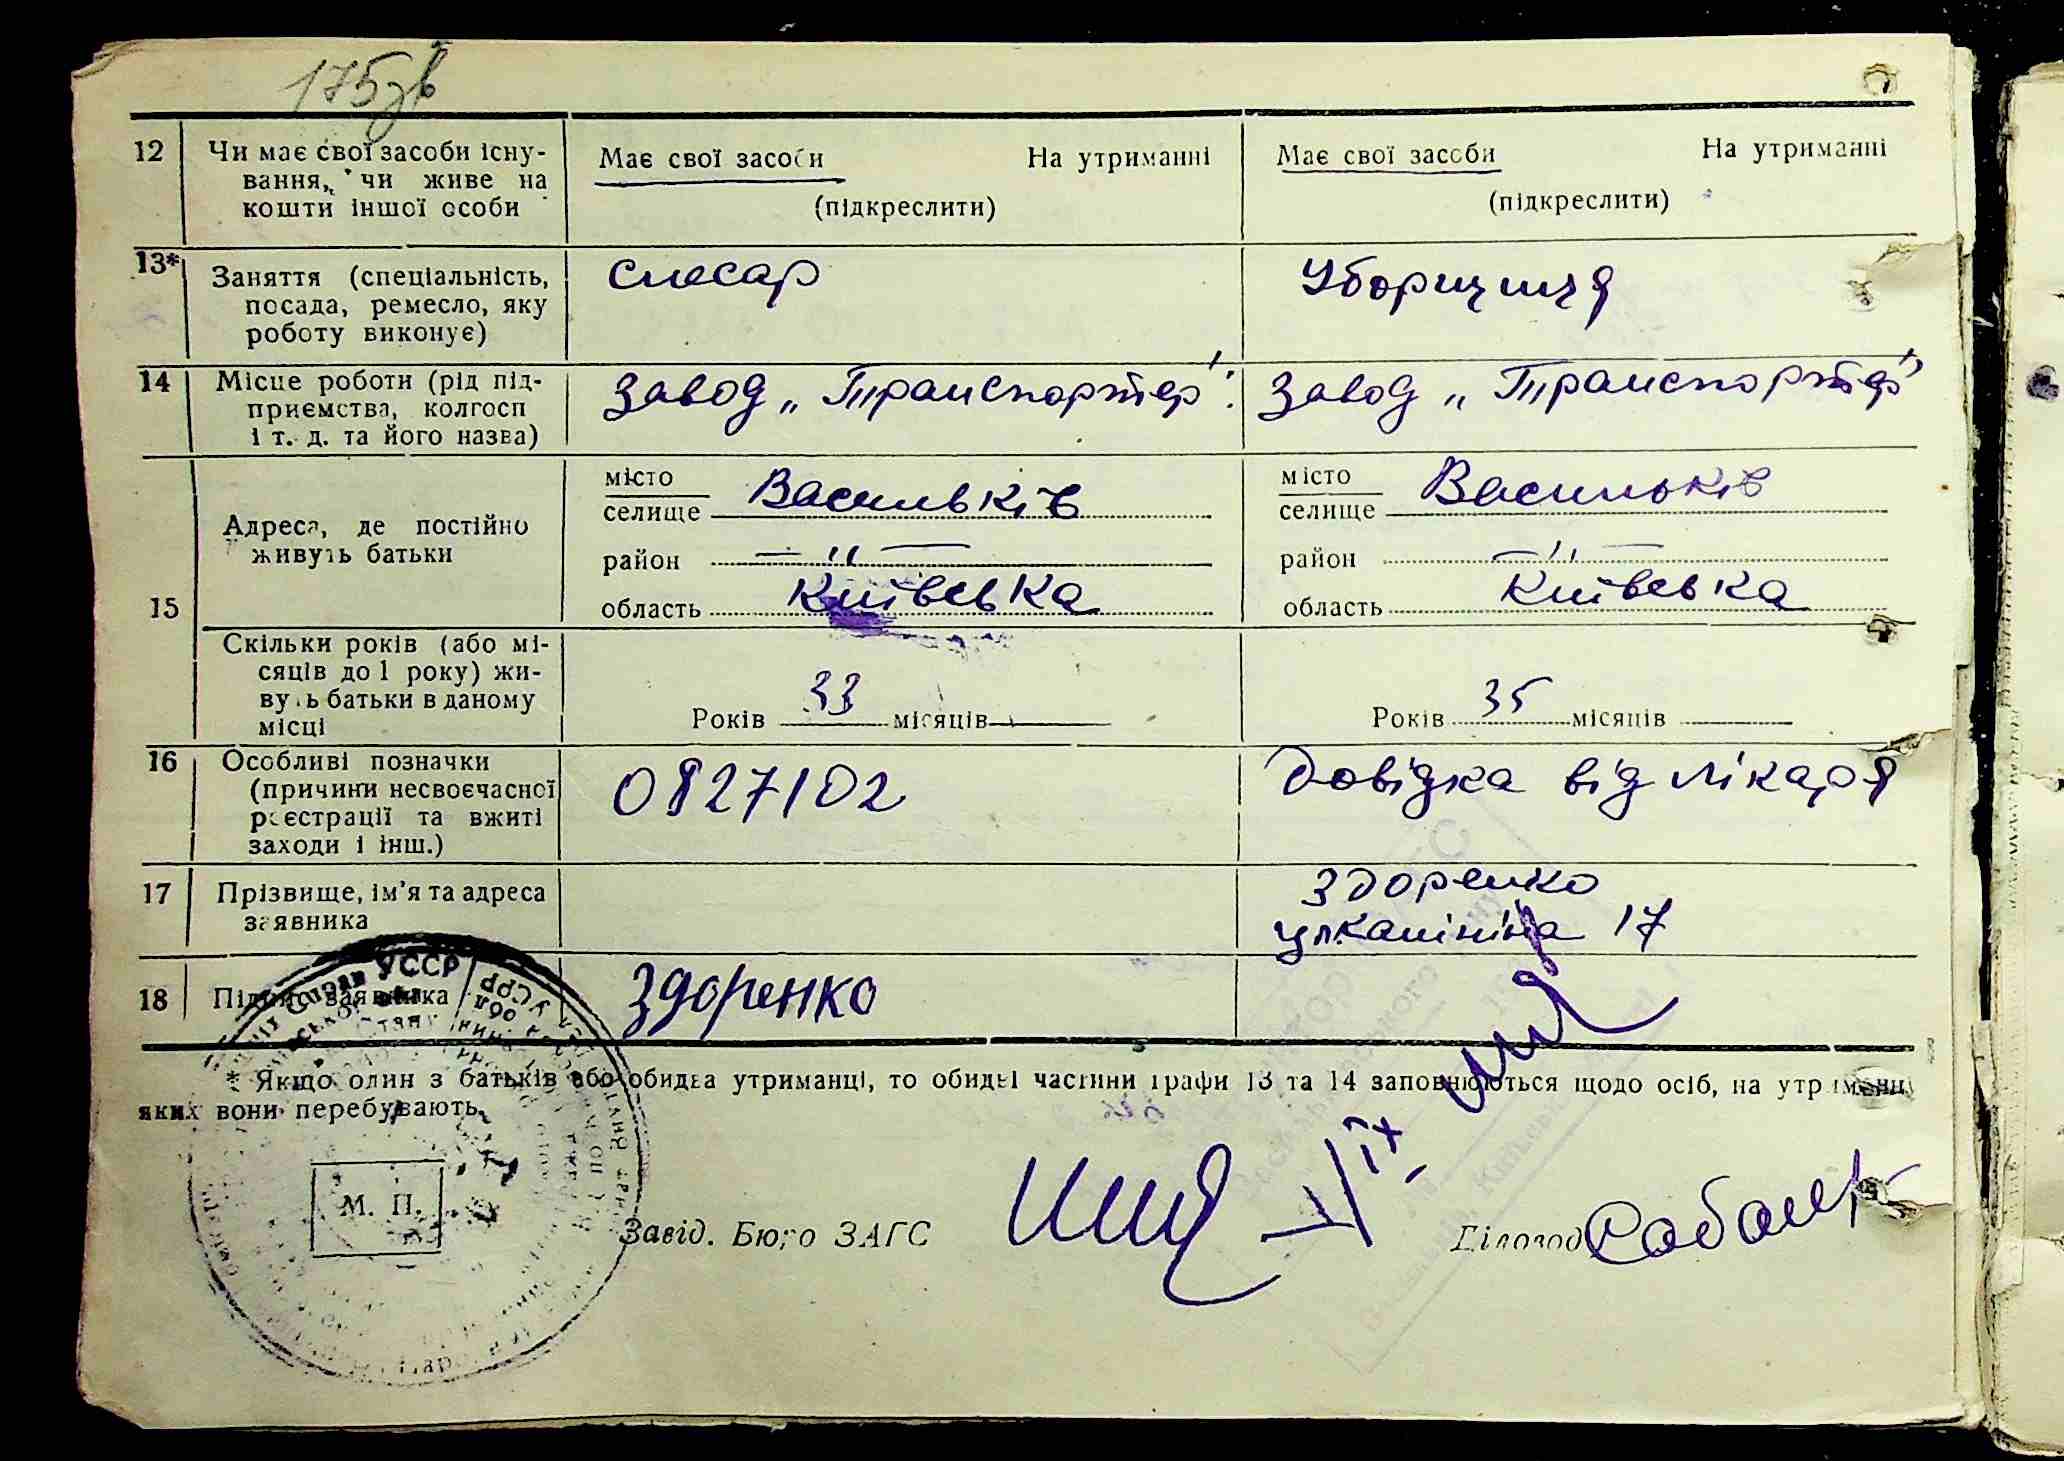 175зв
12 Чи має свої засоби існу- Має свої засоби На утриманні Має свої засоби На утриманні
вання, чи живе на
кошти іншої особи (підкреслити) (підкреслити)
13* Заняття (спеціальність, слесар Уборщиця
посада, ремесло, яку
роботу виконує)
14 Місце роботи (рід під- Завод „Транспортер". Завод „Транспортер"
приємства, колгосп
і т. д. та його назва)
15 Адреса, де постійно живуть батьки
місто Васильків місто Васильків
селище селище
район — " — район — " —
область Київська область Київська
Скільки років (або мі-
сяців до 1 року) жи-
вуть батьки в даному
місці Років 33 місяців Років 35 місяців
16 Особливі позначки 0827102 Довідка від лікаря
(причини несвоєчасної
реєстрації та вжиті
заходи і інш.)
17 Прізвище, ім'я та адреса Здоренко
заявника ул. Калініна 17
18 Підпис заявника Здоренко
* Якщо один з батьків або обидва утриманці, то обидві частини графи 13 та 14 заповнюються щодо осіб, на утриманні
яких вони перебувають.
М. П.
Завід. Бюро ЗАГС Діловод
УССР